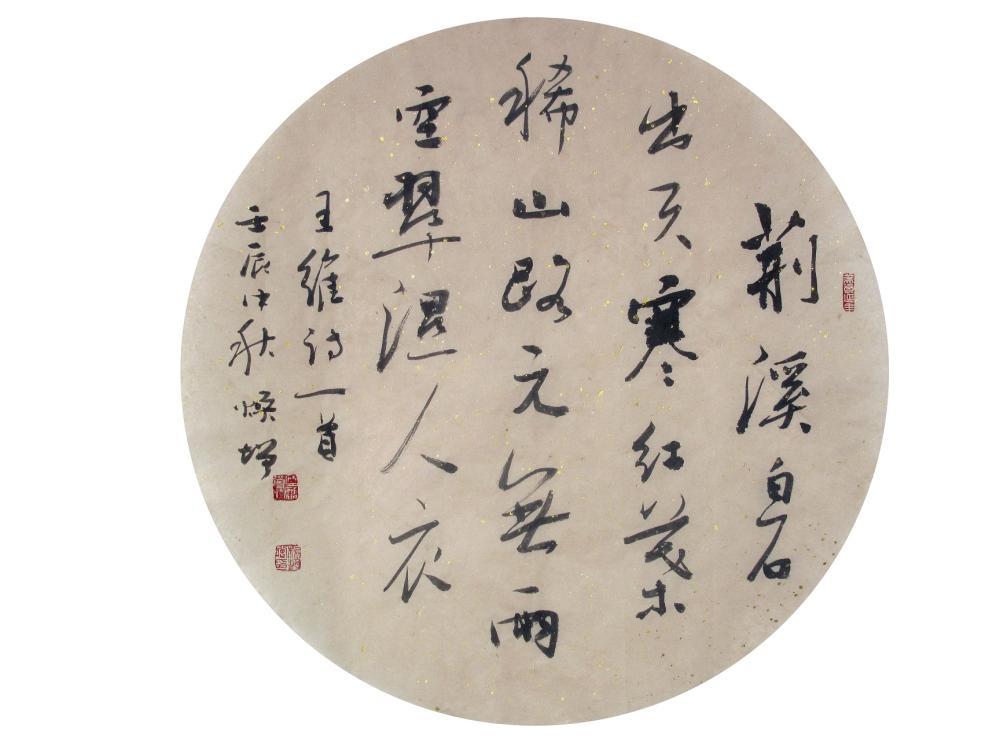 荆溪白石
出天寒红葉
稀山路元無雨
空翠濕人衣
王維诗一首
壬辰中秋焕增